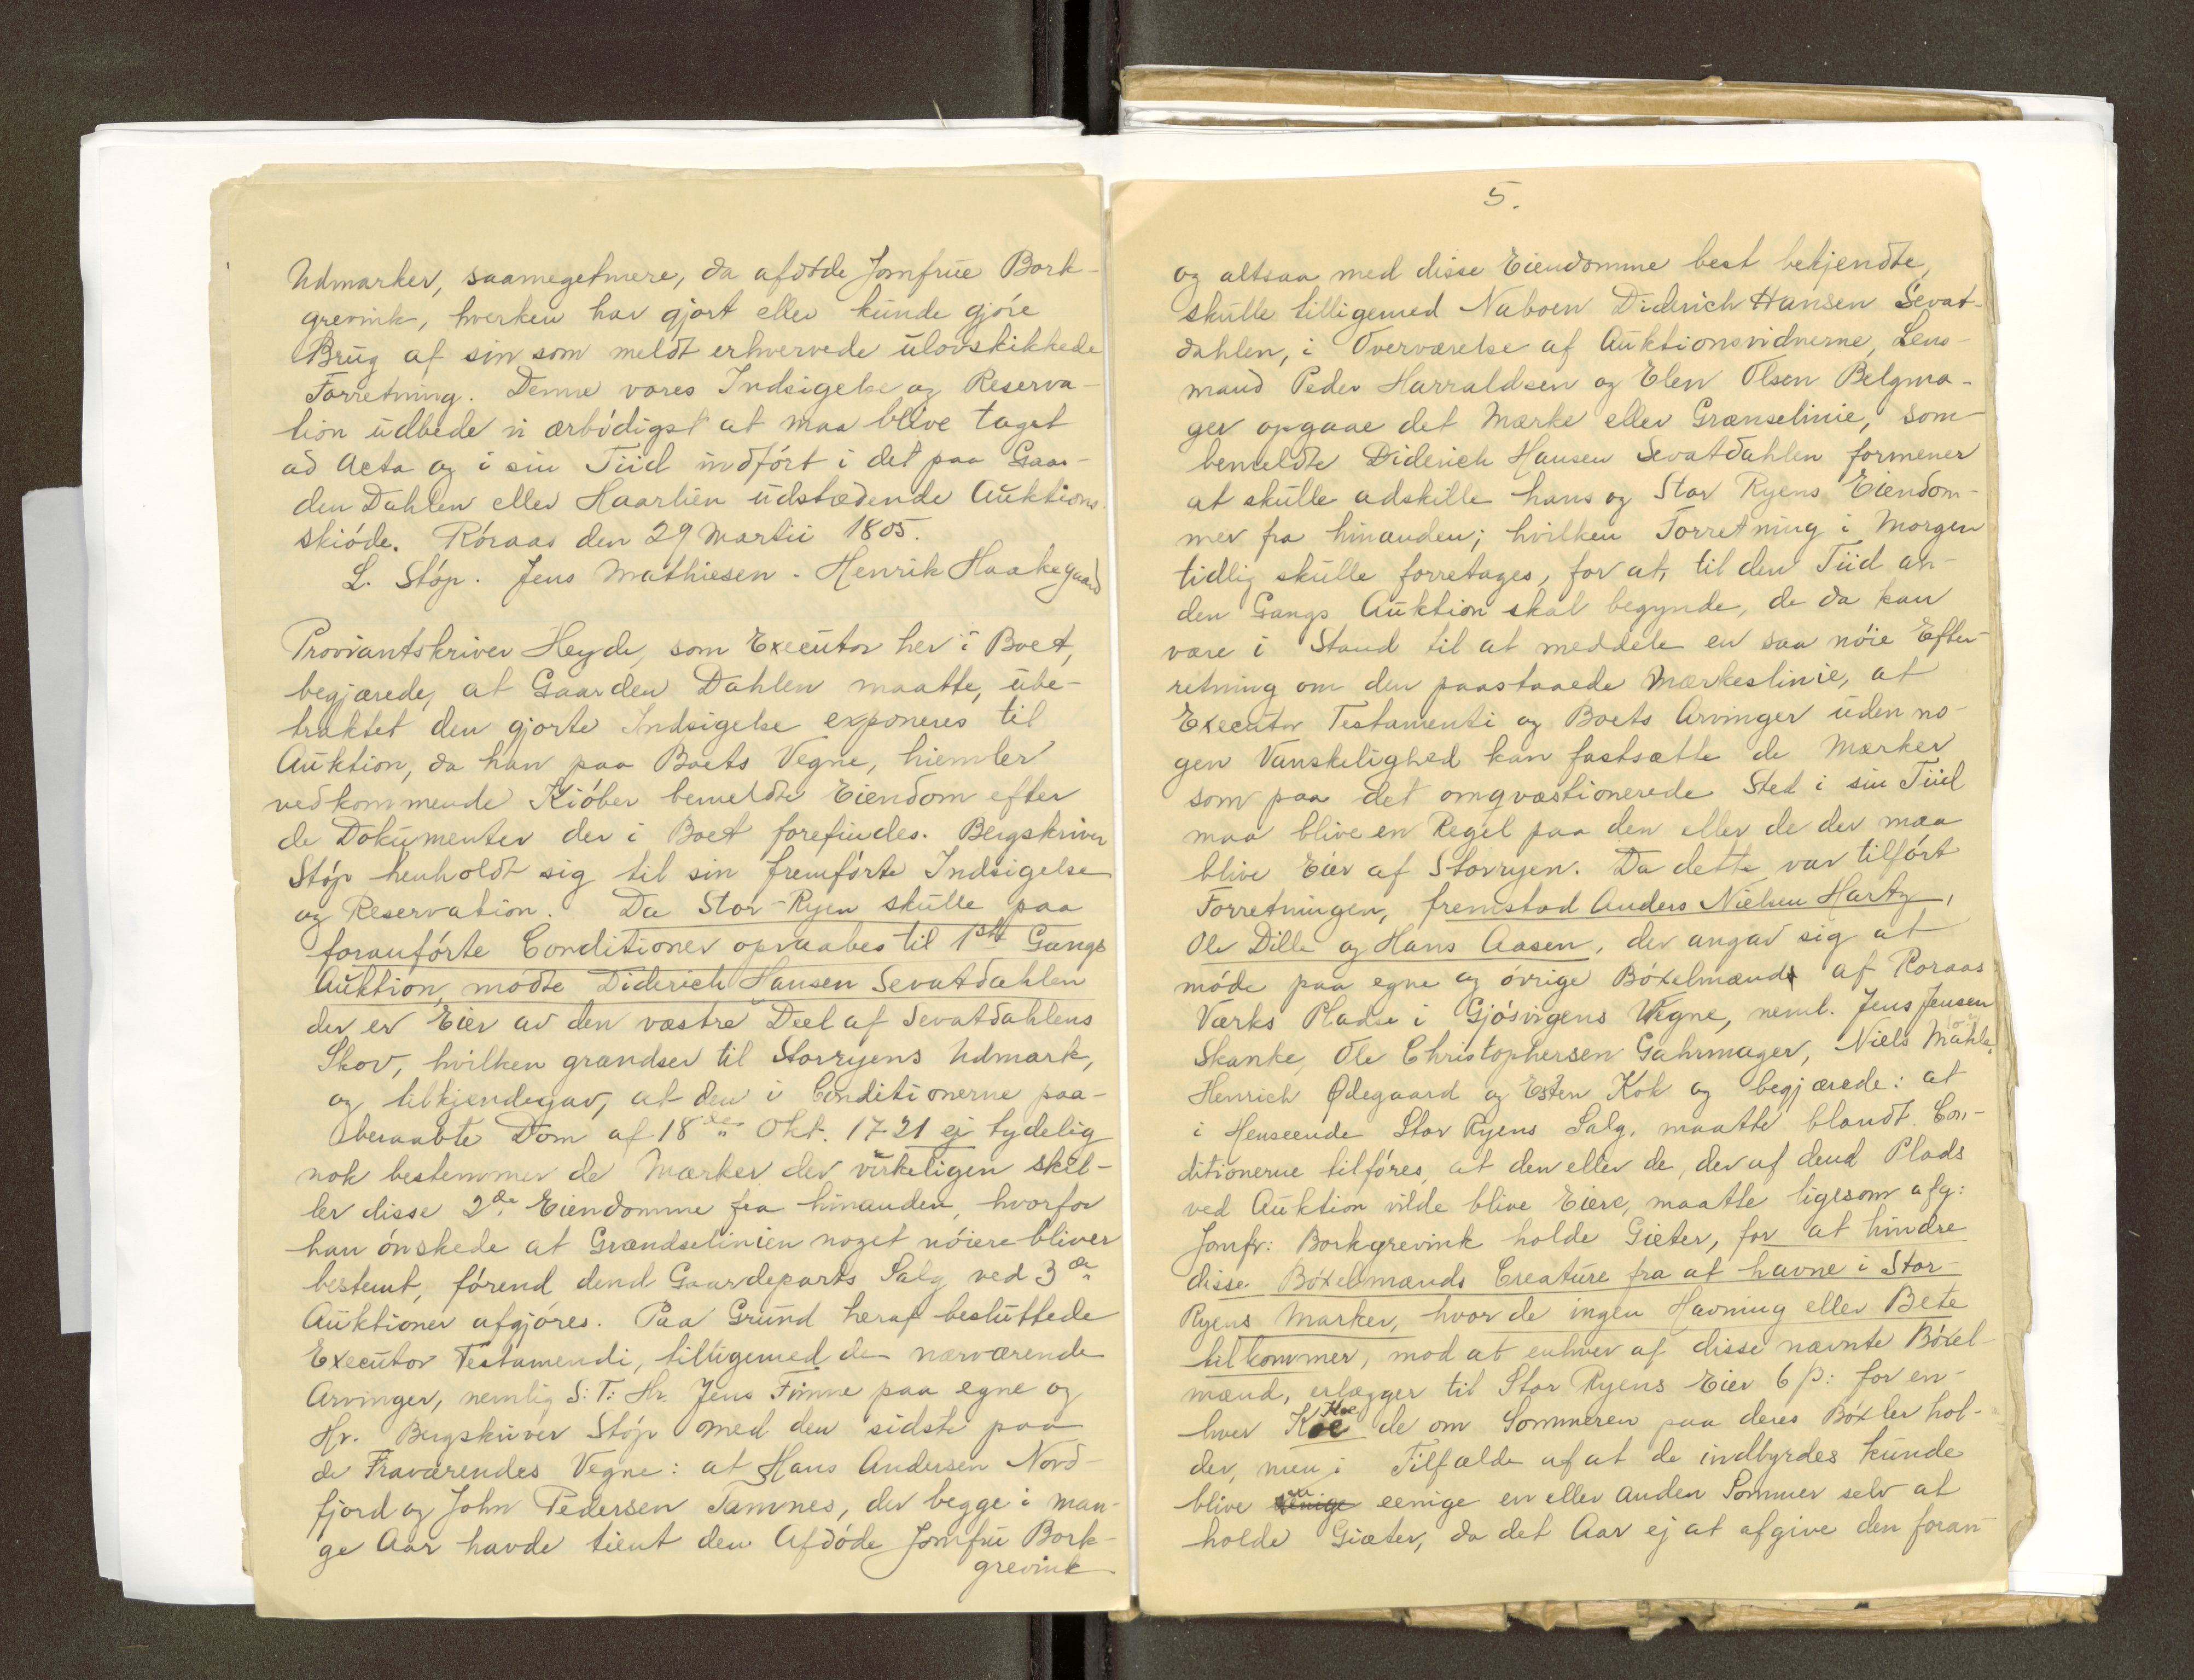 Udmarker, saamegetmere, da afdöde Jomfrue Bork-
grevink, hverken har gjort eller kunde gjöre
Brug af sin som meldt erhvervede ulovskikkede
Forretning. Denne vores Indsigelse og Reserva-
tion udbede vi ærbödigst at maa blive taget
ad Acta og i sin Tiid indfört i det paa Gaar-
den Dahlen eller Haarlien udstædende Auktions-
skiöde. Röraas den 29 Martii 1805.
L. Stöp. Jens Mathiesen. Henrik Haakegaard
Proviantskriver Heyde, som Executor her i Boet,
begjærede, at Gaarden Dahlen maatte, ube-
traktet den gjorte Indsigelse exponeres til
Auktion, da han paa Boets Vegne, hiemler
vedkommende Kiöber bemeldte Eiendom efter
de Dokumenter der i Boet forefindes. Bergskriver
Stöp henholdt sig til sin fremförte Indsigelse
og Reservation. Da Stor-Ryen skulle paa
foranförte Conditioner opraabes til 1ste Gangs
Auktion, mödte Diderich Hansen Sevatdahlen
der er Eier av den væstre Deel af Sevatdahlens
Skov, hvilken grændser til Storryens Udmark,
og tilkjendegav, at den i Conditionerne paa-
beraabte Dom af 18de Okt. 1721 ej tydelig
nok bestemmer de Mærker der virkeligen skil-
ler disse 2de Eiendomme fra hinanden, hvorfor
han önskede at Grændselinien noget nöiere bliver
bestemt, förend dend Gaardeparts Salg ved 3de
Auktioner afgjöres. Paa Grund heraf besluttede
Executor Testamendi, tilligemed de nærværende
Arvinger, nemlig S: T: Hr. Jens Finne paa egne og
Hr. Bergskriver Stöp med den sidste paa
de Fraværendes Vegne: at Hans Andersen Nord-
fjord og John Pedersen Tamnes, der begge i man-
ge Aar havde tient den Afdöde Jomfru Bork-
grevink
5.
og altsaa med disse Eiendomme best bekjendte,
skulle tilligemed Naboen Diderich Hansen Sevat-
dahlen, i Overværelse af Auktionsvidnerne, Lens-
mand Peder Harraldsen og Elen Olsen Belgma-
ger opgaae det Mærke eller Grænselinie, som
bemeldte Diderich Hansen Sevatdahlen formener
at skulle adskille hans og Stor Ryens Eiendom-
mer fra hinanden; hvilken Forretning i Morgen
tidlig skulle forretages, for at, til den Tiid an-
den Gangs Auktion skal begynde, de da kan
være i Stand til at meddele en saa nöie Efter-
retning om den paastaaede Mærkeslinie, at
Executor Testamenti og Boets Arvinger uden no-
gen Vanskelighed kan fastsætte de Mærker
som paa det omqvæstionerede Sted i sin Tiid
maa blive en Regel paa den eller de der maa
blive Eier af Storryen. Da dette var tilfört
Forretningen, fremstod Anders Nielsen Hartz,
Ole Dille og Hans Aasen, der angav sig at
möde paa egne og övrige Böxelmænds af Röraas
Værks Pladse i Gjösvigens Vegne, neml. Jens Jensen
Skanke, Ole Christophersen Gahrmager, Niels Mahla,
Henrich Ødegaard og Esten Kok og begjærede: at
i Henseende Stor Ryens Salg, maatte blandt Con-
ditionerne tilföres, at den eller de, der af dend Plads
ved Auktion vilde blive Eiere, maatte ligesom afg:
Jomfr: Borkgrevink holde Giæter, for at hindre
disse Böxelmænds Creature fra at havne i Stor-
Ryens Marker, hvor de ingen Havning eller Bete
tilkommer, mod at enhver af disse nævnte Böxel-
mænd, erlægger til Stor Ryens Eier 6 β: for en-
hver Koe Koe de om Sommeren paa deres Böxler hol-
der, men i Tilfælde af at de indbyrdes kunde
blive eenige en eller anden Sommer selv at
holde Giæter, da det Aar ej at afgive den foran-